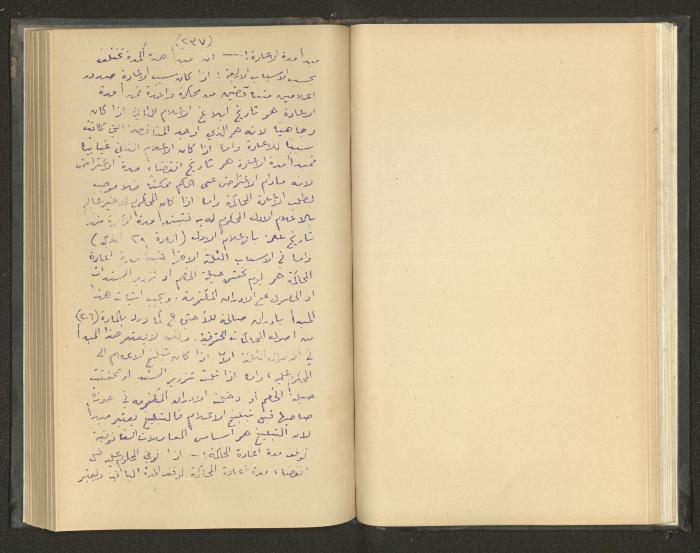 (٢٣٧)
مبدأ مدة الاعادة :— ان مبدأ هذه المدة تختلف
بحسب الاسباب الاربعة : اذا كان سبب الاعادة صدور
اعلامين متناقضين من محكمة واحدة فمبدأ مدة
الاعادة هو تاريخ ابلاغ الاعلام الثاني اذا كان
وجاهيا لانه هو الذي اوجد المناقضة التي كانت
سببا للاعادة واذا كان الاعلام الثاني غيابيا
فمبدأ مدة الاعادة هو تاريخ انقضاء مدة الاعتراض
لانه مادام الاعتراض على الحكم ممكنا فلا موجب
لطلب الاعادة المحاكمة واما اذا كان المحكوم له غير عالم
بالاعلام الاول المحكوم له به فتبتدأ مدة الاعادة منذ
تاريخ علمه بالاعلام الاول (ارادة ٢٩
واما في الاسباب الثلثة الاخرى فمبدأ مدة اعادة
المحاكمة هو يوم تحقق حيلة الخصم او تزوير السندات
او الحصول على الاوراق المكتومة . ويجب اثبات هذا
المبدأ باوراق صالحة للاحتجاج كما ورد بالمادة (٢٠٦)
من اصول المحاكمات الحقوقية . ولكن لا يعتبر هذا المبدأ
في الاسباب الثلثة الا اذا كان تبليغ الاعلام الى
المحكوم عليه ، واما اذا ثبت تزوير السند او تحققت
حيلة الخصم او دخلت الاوراق المكتومه في حوزة
صاحبها قبل تبليغ الاعلام فالتبليغ يعتبر مبدأ
لان التبليغ هو اساس المعاملات القانونية
توقف مدة اعادة المحاكمة :— اذا توفي المحكوم عليه قبل
انقضاء مدة اعادة المحاكمة توقف المدة الباقية ويعتبر